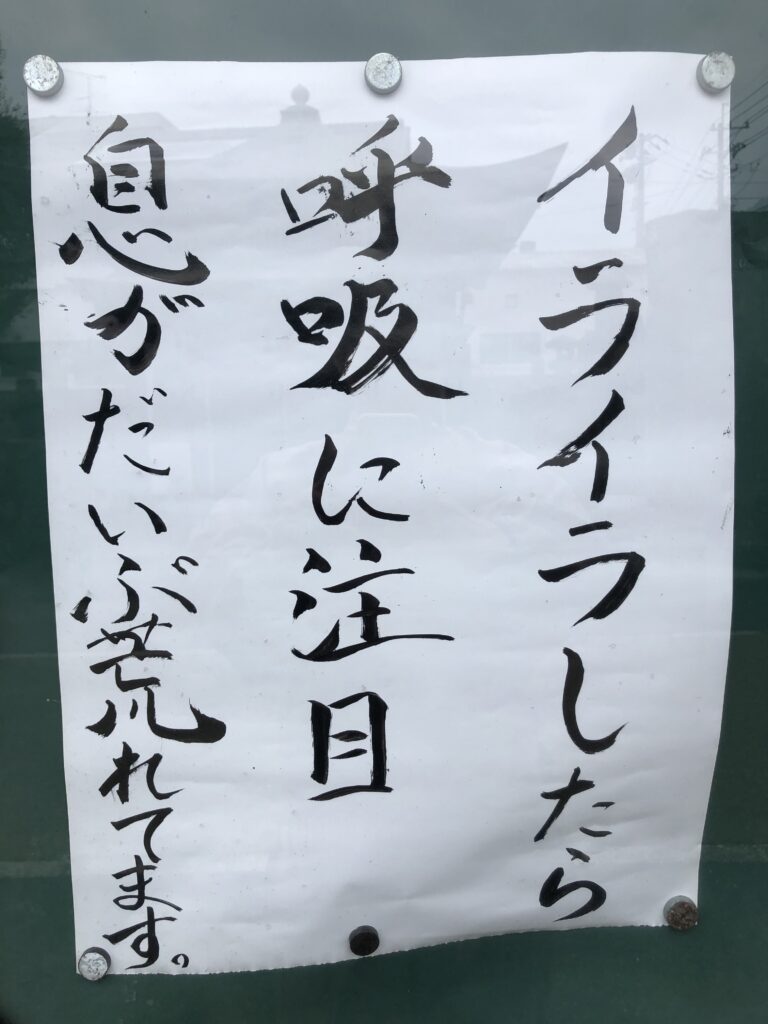 イライラしたら
呼吸に注目
息がだいぶ荒れてます。